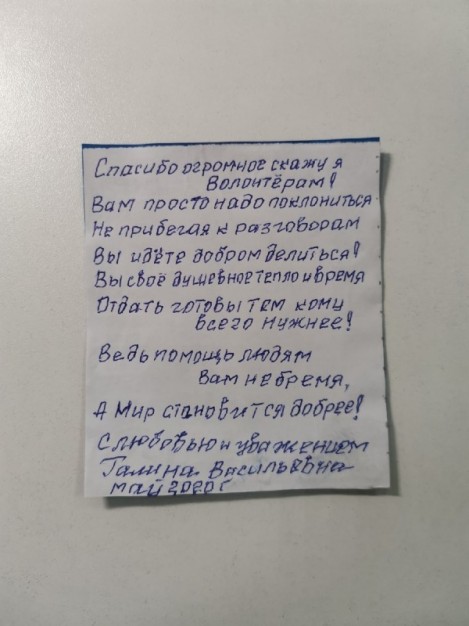 Спасибо огромное скажу я
Волонтёрам!
Вам просто надо поклониться
Не прибегая к разговорам
Вы идёте добром делиться!
Вы своё душевное тепло и время
Отдать готовы тем кому
всего нужнее!
Ведь помощь людям
Вам не бремя,
А Мир становится добрее!
С любовью и уважением
Галина Васильевна
май 2020г